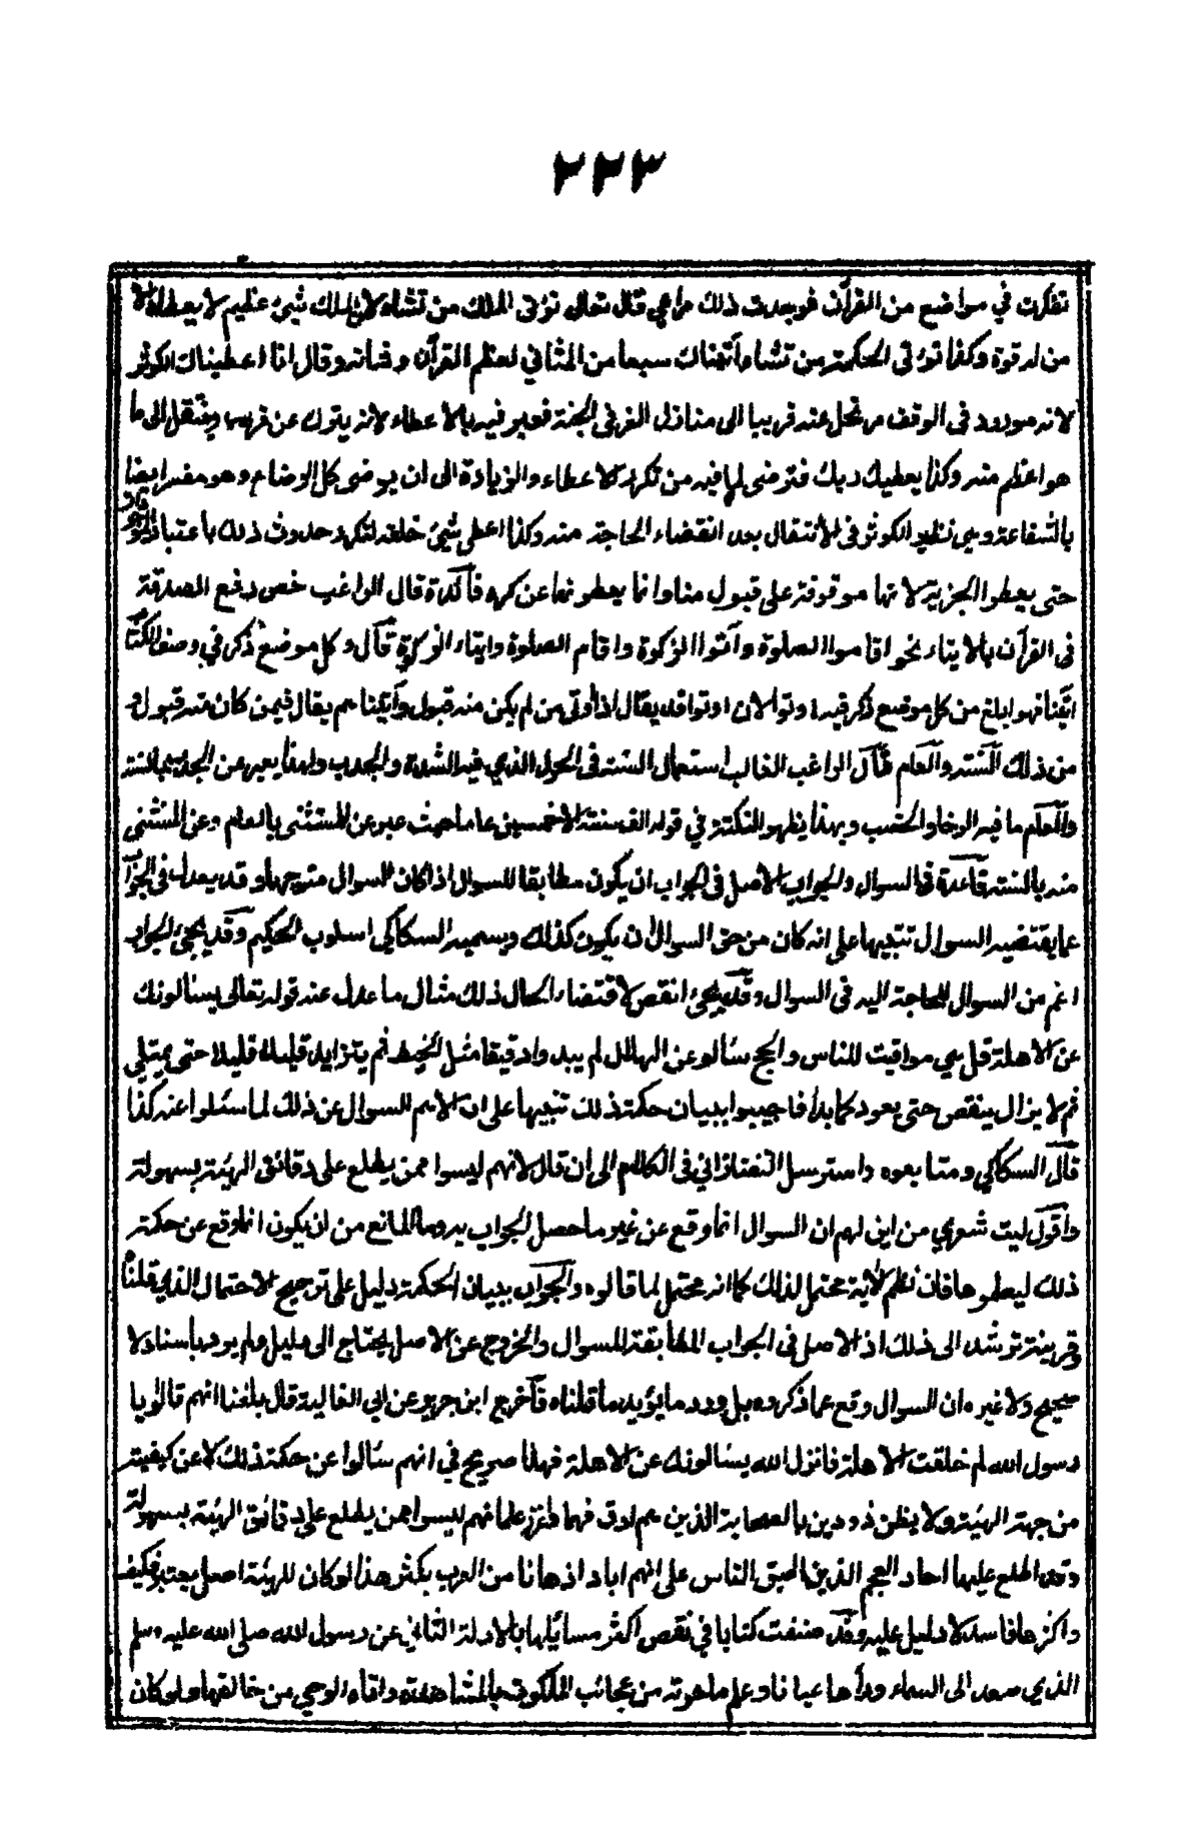 ٢٢٣
تفكرت في مواضع من القرآن فوجدت ذلك مراعى قال تعالى تؤتى الملك من تشاء لان الملك شيئ عظيم لا يعطاه الا
من له قوة وكذا تؤتى الحكمة من تشاء آتيناك سبعا من المثاني لعظم القرآن وشانه وقال انا اعطيناك الكوثر
لانه مورود في الموقف مرتحل عنه قريبا الى منازل العز في الجنة فعبر فيه بالاعطاء لانه يترك عن قرب وينتقل الى ما
هو اعظم منه وكذا يعطيك ربك فترضى لما فيه من تكرير الاعطاء والزيادة الى ان يرضى كل الرضاء وهو مفسر ايضا
بالشفاعة وهي نظير الكوثر في الانتقال بعد انقضاء الحاجة منه وكذا اعطى كل شيئ خلقه لتكرر حدوث ذلك باعتبار الموجودات
حتى يعطوا الجزية لانها موقوفة على قبول منا وانما يعطونها عن كره فائدة قال الراغب خص دفع الصدقة
في القرآن بالايتاء نحو اقاموا الصلوة وآتوا الزكوة واقام الصلوة وايتاء الزكوة قال وكل موضع ذكر في وصف الكتاب
آتينا فهو ابلغ من كل موضع ذكر فيه اوتوا لان اوتوا قد يقال اذا اوتي من لم يكن منه قبول وآتيناهم يقال فيمن كان منه قبول و
من ذلك السنة والعام قال الراغب الغالب استعمال السنة في الحول الذي فيه الشدة والجدب ولهذا يعبر عن الجدب بالسنة
والعام ما فيه الرخاء والخصب وبهذا يظهر النكتة في قوله الف سنة الا خمسين عاما حيث عبر عن المستثنى بالعام وعن المستثنى
منه بالسنة قاعدة في السوال والجواب الاصل في الجواب ان يكون مطابقا للسوال اذا كان السوال متوجها وقد يعدل في الجواب
عما يقتضيه السوال تنبيها على انه كان من حق السوال ان يكون كذلك ويسميه السكاكي اسلوب الحكيم وقد يجئ الجواب
اعم من السوال للحاجة اليه في السوال وقد يجئ انقص لاقتضاء الحال ذلك مثال ما عدل عنه قوله تعالى يسئالونك
عن الاهلة قل هي مواقيت للناس والحج سئالو عن الهلال لم يبدوا دقيقا مثل الخيط ثم يتزايد قليلا قليلا حتى يمتلي
ثم لا يزال ينقص حتى يعود كما بدأ فاجيبوا ببيان حكمة ذلك تنبيها على ان الاهم السوال عن ذلك لما سئلوا عنه كذا
قال السكاكي ومتابعوه واسترسل التفتازاني في الكلام الى ان قال لانهم ليسوا ممن يطلع على دقائق الهيئة بسهولة
واقول ليت شعري من اين لهم ان السوال انما وقع عن غير ما حصل الجواب به وما المانع من ان يكون انما وقع عن حكمة
ذلك ليعلموها فان نظم الآية محتمل لذلك كما انه محتمل لما قالوه والجواب ببيان الحكمة دليل على ترجيح الاحتمال الذي قلناه
وقرينة ترشد الى ذلك اذ الاصل في الجواب المطابقة للسوال والخروج عن الاصل يحتاج الى دليل ولم يرد باسناد لا
صحيح ولا غيره ان السوال وقع عما ذكروه بل ورد ما يؤيد ما قلناه فاخرج ابن جرير عن ابي العالية قال بلغنا انهم قالوا يا
رسول الله لم خلقت الاهلة فانزل الله يسئالونك عن الاهلة فهذا صريح في انهم سئالوا عن حكمة ذلك لا عن كيفيته
من جهة الهيئة ولا يظن ذو دين بالصحابة الذين هم ادق فهما واغزر علما انهم ليسوا ممن يطلع على دقائق الهيئة بسهولة
وقد اطلع عليها احاد العجم الذين اطبق الناس على انهم ابلد اذهانا من العرب بكثير هذا لو كان للهيئة اصل يعتبر فكيف
واكثرها فاسد لا دليل عليه وقد صنفت كتابا في نقض اكثر مسائلها بالادلة الثابتة عن رسول الله صلى الله عليه وسلم
الذي صعد الى السماء ورأها عيانا وعلم ما حوته من عجائب الملكوت بالمشاهدة واتاه الوحي من خالقها ولو كان